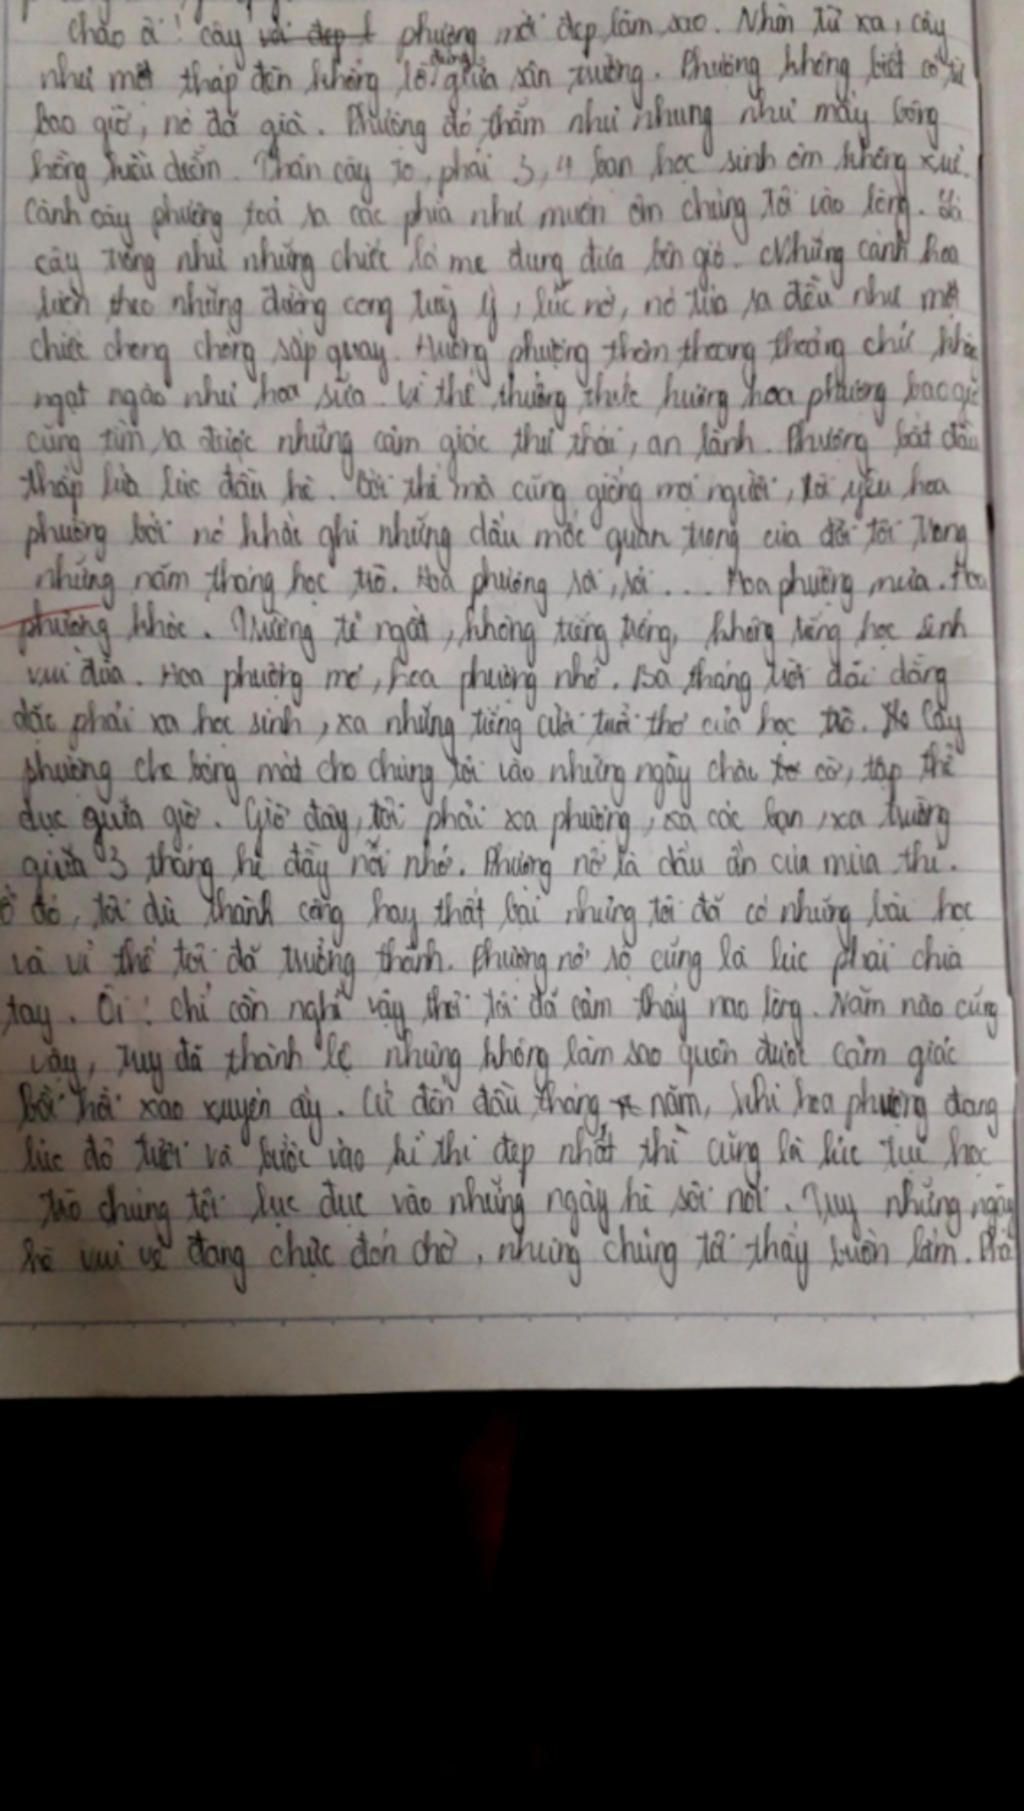 Chào ôi! cây phượng mới đẹp làm sao. Nhìn từ xa, cây
như một tháp đèn khổng lồ đứng giữa sân trường. Phượng không biết có từ
bao giờ, nó đã già. Phượng đỏ thắm như nhung như mấy bông
hồng kiều diễm. Thân cây to, phải 3, 4 bạn học sinh ôm không xuể.
Cành cây phượng toả ra các phía như muốn ôm chúng tôi vào lòng. Lá
cây trông như những chiếc lá me đung đưa bên gió. Những cành hoa
theo những đường cong tuỳ ý, lúc nở, nó toả ra đều như một
chiếc chong chóng sắp quay. Hương phượng thơm thoang thoảng chứ không
ngọt ngào như hoa sữa. Vì thế, thưởng thức hương hoa phượng bao giờ
cũng tìm ra được những cảm giác thư thái, an lành. Phượng bắt đầu
thắp lửa lúc đầu hè. Bởi thế mà cũng giống mọi người, tôi yêu hoa
phượng bởi nó khắc ghi những dấu mốc quan trọng của đời tôi trong
những năm tháng học trò. Hoa phượng rơi, rơi... Hoa phượng mưa. Hoa
phượng khóc. Trường tẻ ngắt, không tiếng trống, không tiếng học sinh
vui đùa. Hoa phượng mơ, hoa phượng nhớ. Ba tháng trời dài dằng
dặc phải xa học sinh, xa những tiếng cười tuổi thơ của học trò. Cây
phượng che bóng mát cho chúng tôi vào những ngày chào cờ, tập thể
dục giữa giờ. Giờ đây, tôi phải xa phượng, xa các bạn, xa trường
giữa 3 tháng hè đầy nỗi nhớ. Phượng nở là dấu ấn của mùa thi.
Ở đó, tôi dù thành công hay thất bại nhưng tôi đã có những bài học
và vì thế tôi đã trưởng thành. Phượng nở rộ cũng là lúc phải chia
tay. Ôi! chỉ cần nghĩ vậy thôi tôi đã cảm thấy nao lòng. Năm nào cũng
vậy, tuy đã thành lệ nhưng không làm sao quên được cảm giác
bồi hồi xao xuyến ấy. Cứ đến đầu tháng năm, khi hoa phượng đang
lúc đỏ tươi và bước vào kì thi đẹp nhất thì cũng là lúc tuổi học
trò chúng tôi lục đục vào những ngày hè sôi nổi. Tuy những ngày
hè vui vẻ đang chực đón chờ, nhưng chúng tôi thấy buồn lắm. Phả